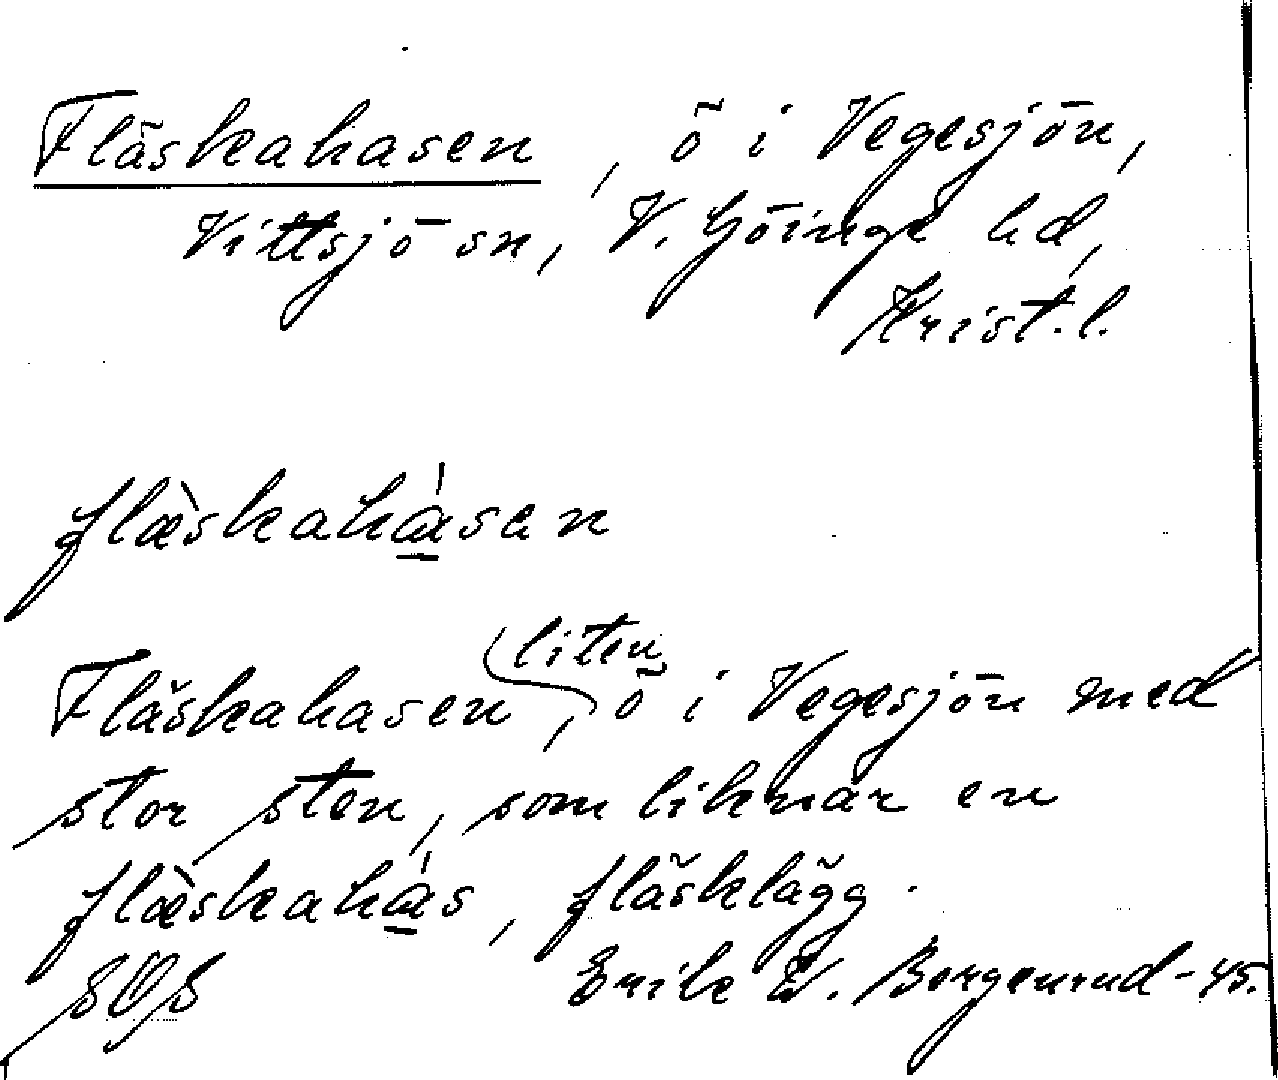 Fläskahasen, ö i Vegesjön,
Vittsjö sn, V. Göinge hd,
Krist. l.
flæ̀skahása n
Fläskahasen, liten ö i Vegesjön med
stor sten, som liknar en
flæ̀skahás, fläsklägg.
Erik W. Borgenrud -45.